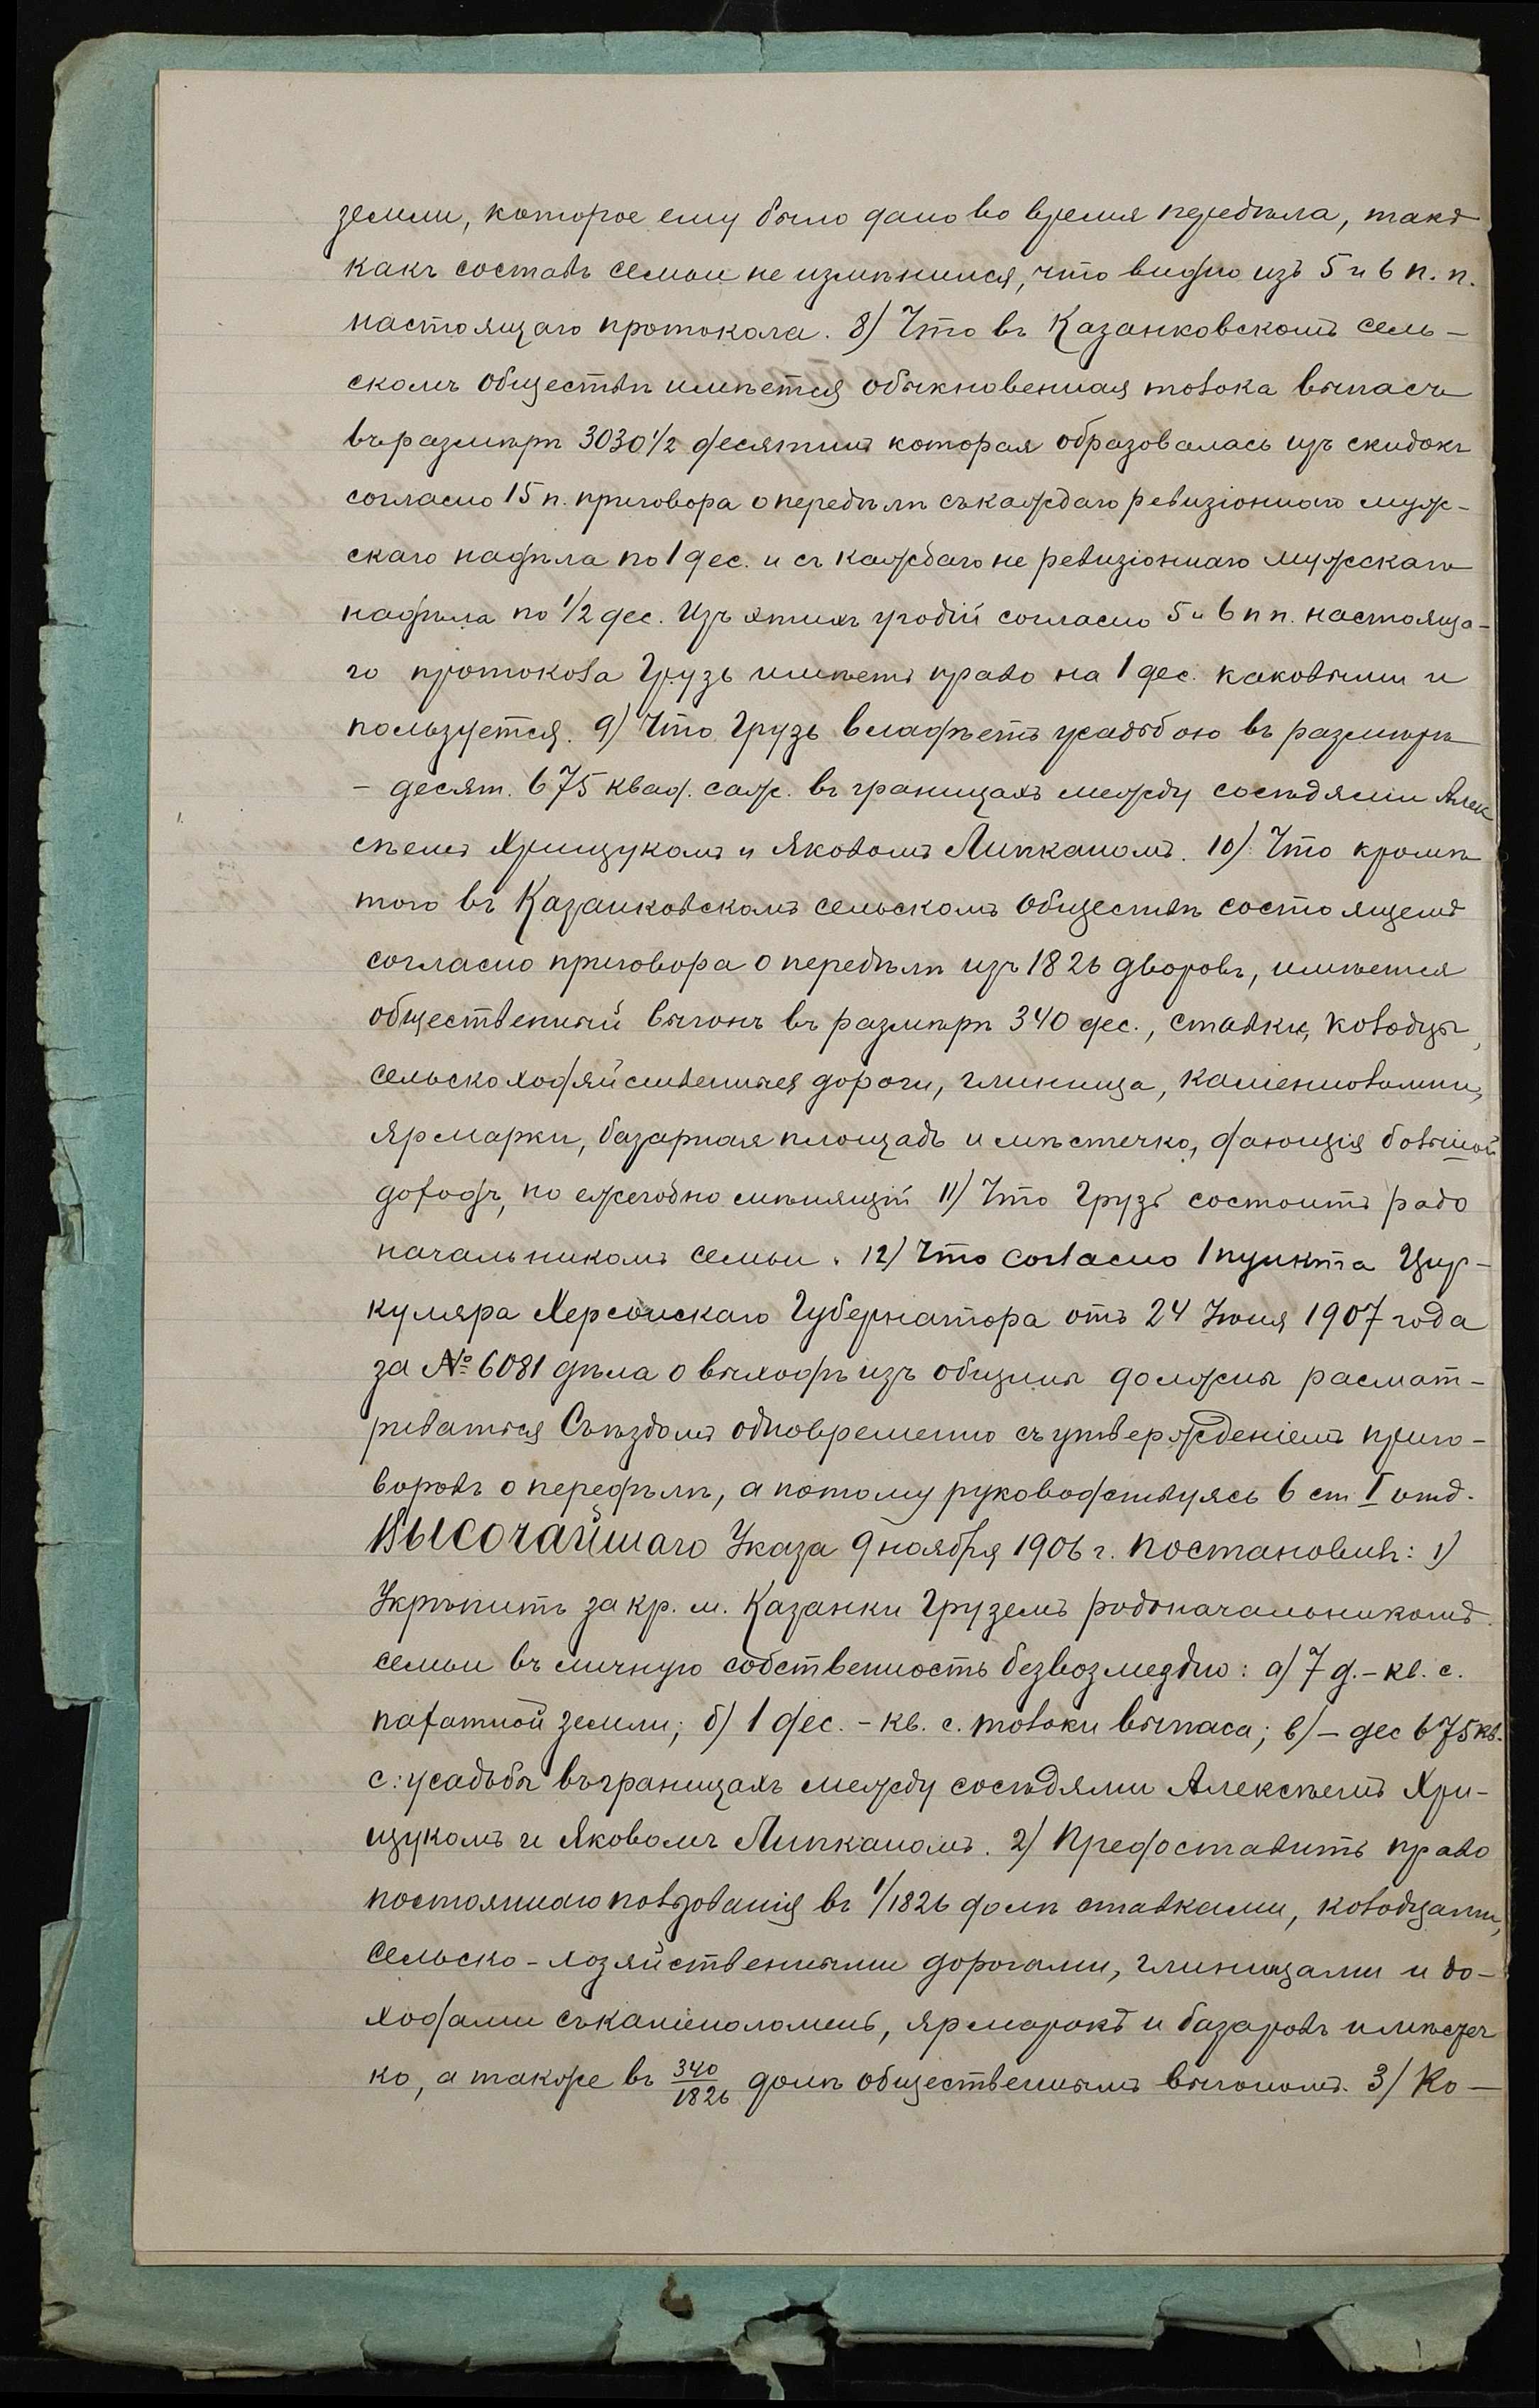 земли, которое ему было дано во время передѣла, такъ
какъ составъ семьи не измѣнился, что видно изъ 5 и 6 п. п.
настоящаго протокола. 8) Что въ Казанковскомъ сель-
скомъ обществѣ имѣется обыкновенная толока выпасъ
въ размѣрѣ 3030 1/2 десятинъ которая образовалась изъ скидокъ
согласно 15 п. приговора о передѣлѣ съ каждаго ревизіоннаго муж-
скаго надѣла по 1 дес. и съ каждаго не ревизіоннаго мужскаго
надѣла по 1/2 дес. Изъ этихъ угодій согласно 5 и 6 п п. настояща-
го протокола Грузь имѣетъ право на 1 дес. каковыми и
пользуется. 9) Что Грузь владѣетъ усадьбою въ размѣрѣ
- десят. 675 квад. саж. въ границахъ между сосѣдями Алек
сѣемъ Хрищукомъ и Яковомъ Липканомъ. 10) Что кромѣ
того въ Казанковскомъ сельскомъ обществѣ состоящемъ
согласно приговора о передѣлѣ изъ 1826 дворовъ, имѣется
общественный выгонъ въ размѣрѣ 340 дес., ставки, колодцы,
сельскохозяйственныя дороги, глинища, каменноломни,
ярмарки, базарная площадь и мѣстечко, дающія большой
доходъ, но ежегодно смѣнящій 11) Что Грузь состоитъ радо
начальникомъ семьи. 12) Что согласно 1 пункта Цир-
куляра Херсонскаго Губернатора отъ 24 Іюня 1907 года
за № 6081 дѣла о выходѣ изъ общины должны расмат-
риваться Съѣздомъ одновременно съ утвержденіемъ приго-
воровъ о передѣлѣ, а потому руководствуясь 6 ст I отд.
Высочайшаго Указа 9 ноября 1906 г. постановилъ: 1)
Укрѣпить за кр. м. Казанки Груземъ родоначальникомъ
семьи въ личную собственность безвозмездно: а) 7 д. - кв. с.
пахатной земли; б) 1 дес. - кв. с. толоки выпаса; в) - дес 675 кв.
с: усадьбы въ границахъ между сосѣдями Алексѣемъ Хри-
щукомъ и Яковомъ Липканомъ. 2) Предоставить право
постояннаго пользованія въ 1/1826 долѣ ставками, колодцами,
сельско-хозяйственными дорогами, глинищами и до-
ходами съ каменоломень, ярмарокъ и базаровъ и мѣстеч
ко, а также въ 340/1826 долѣ общественнымъ выгономъ. 3) Ко-